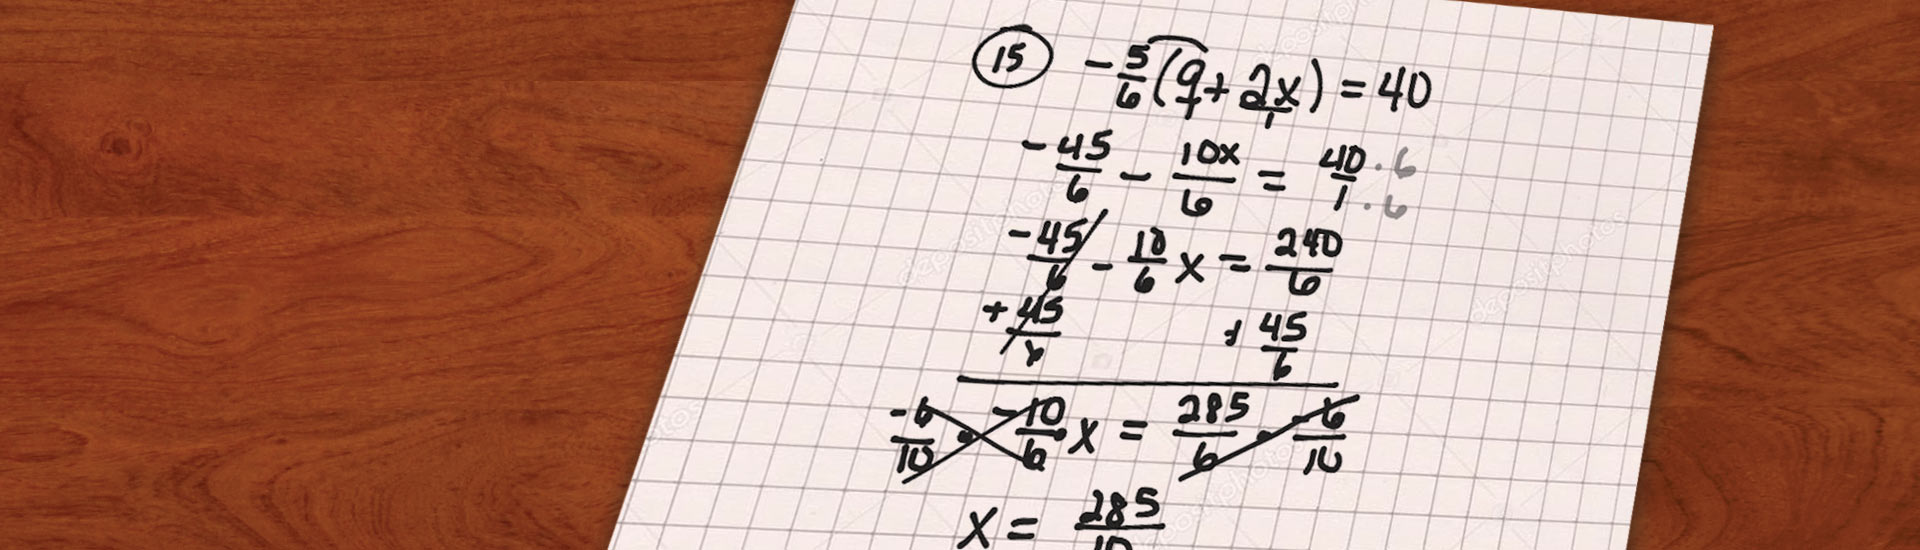 15 -5/6(9/1 + 2x/1) = 40
-45/6 - 10x/6 = 40/1 ·6 ·6
-45/6 - 10/6 x = 240/6
+45/6 + 45/6
-6/10 · -10/6 x = 285/6 · -6/10
x = 285/10